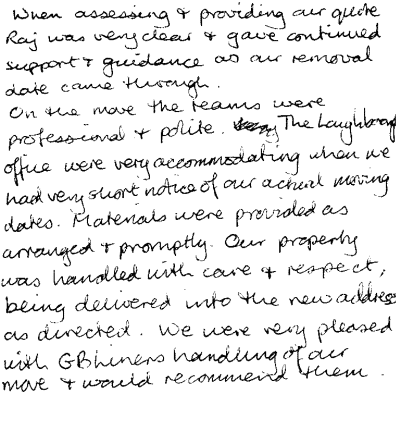 When assessing & providing our quote
Raj was very clear & gave continued
support & guidance as our removal
date came through.
On the move the teams were
professional & polite. The Loughborough
office were very accommodating when we
had very short notice of our actual moving
dates. Materials were provided as
arranged & promptly. Our property
was handled with care & respect,
being delivered into the new address
as directed. We were very pleased
with GBLiners handling of our
move & would recommend them.